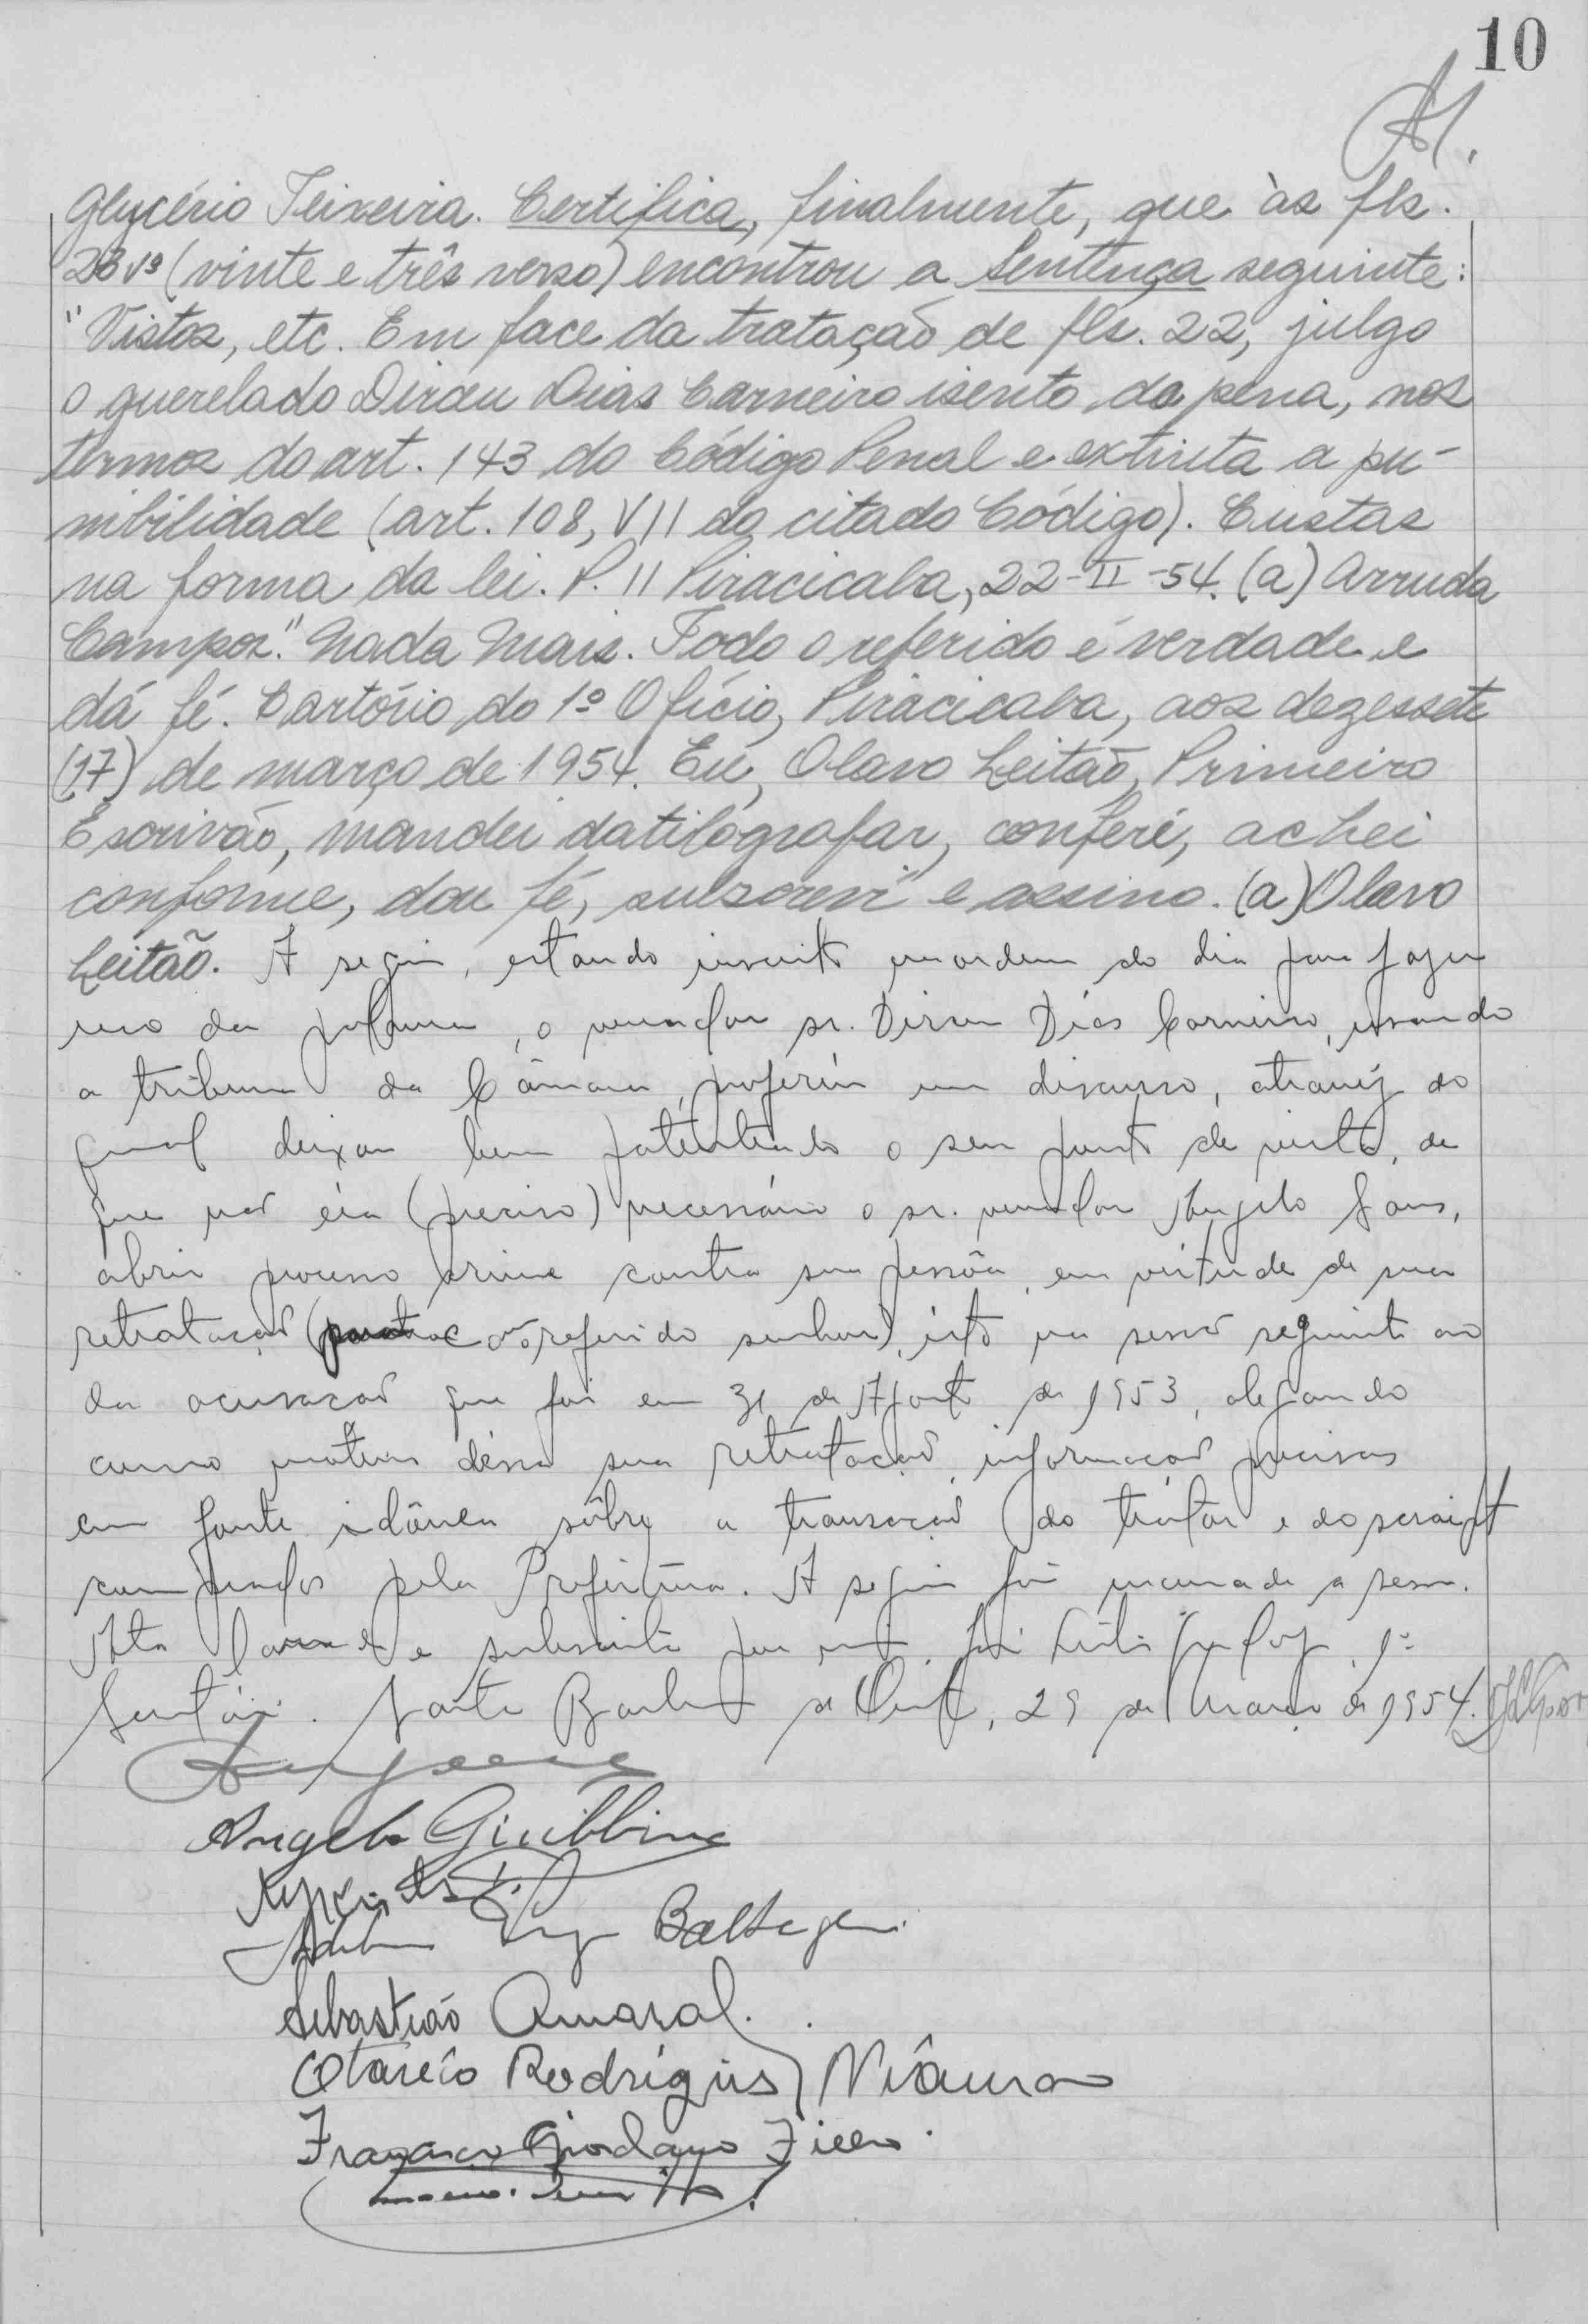 10
Glycério Teixeira. Certifica, finalmente, que às fls.
23 vº (vinte e três verso) encontrou a Sentença seguinte:
"Vistos, etc. Em face da tratação de fls. 22, julgo
o querelado Dirceu Dias Carneiro isento da pena, nos
termos do art. 143 do Código Penal e extinta a pu-
nibilidade (art. 108, VII do citado Código). Custas
na forma da lei. P. II Piracicaba, 22-II-54. (a) Arruda
Campos." Nada Mais. Todo o referido é verdade e
dá fé. Cartório do 1º Ofício, Piracicaba, aos dezessete
(17) de março de 1954. Eu, Olavo Leitão, Primeiro
Escrivão, mandei datilógrafar, conferí, achei
conforme, dou fé, subscrevi e assino. (a) Olavo
Leitão. A seguir, estando inscrito na ordem do dia para fazer
uso da palavra, o vereador sr. Dirceu Dias Carneiro, usando
a tribuna da Câmara, proferiu um discurso, atravéz do
qual deixou bem patenteado o seu ponto de vista, de
que não éra (preciso) necessário o sr. vereador Angelo
abrir processo crime contra sua pessôa, em virtude de sua
retratação ao referido senhor, isto na sessão seguinte ao
da acusação que foi em 31 de Agosto de 1953, alegando
como motivos dessa sua retratação, informação precisas
em fonte idônea sôbre a transação do trator e do
comprados pela Prefeitura. A seguir foi encerrada a sessão.
Ata lavrada e subscrita por mim, 1º
Secretário. Santa Barbara d'Oeste, 29 de Março de 1954.
Angelo Giubbina
Sebastião Amaral.
Otavio Rodrigues Viâuna
Francisco Giordano Filho.